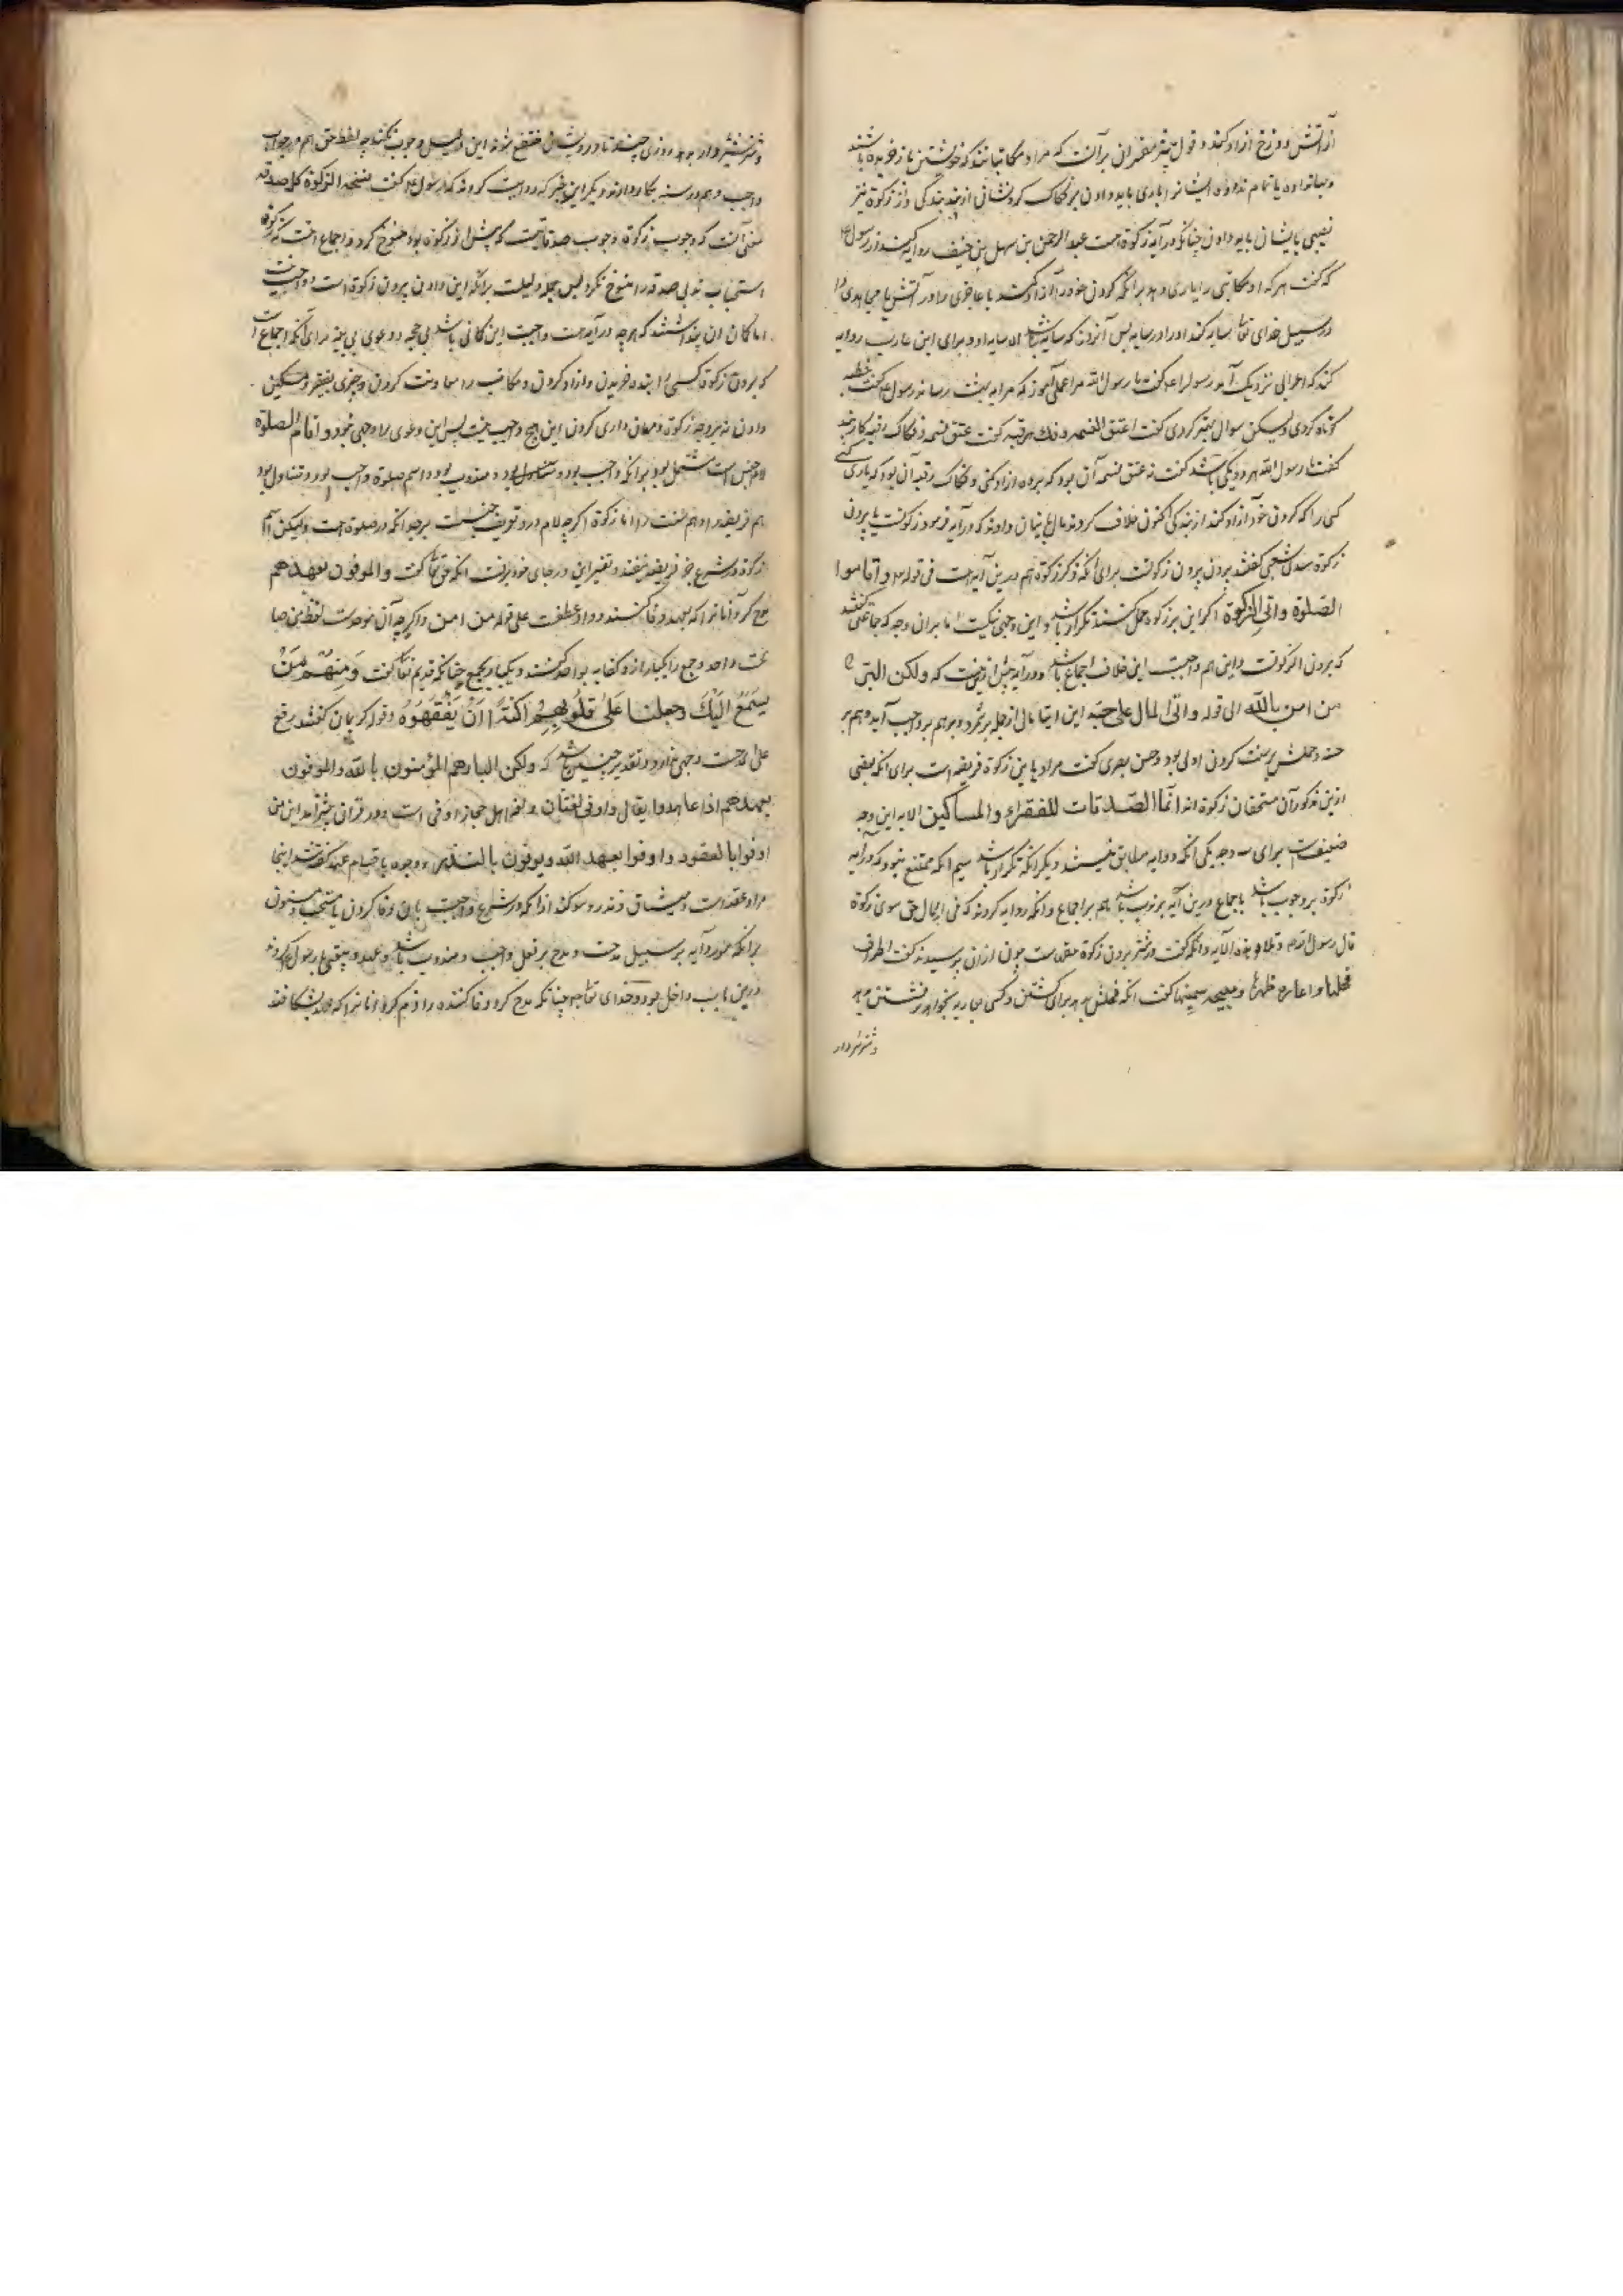 از آتش دوزخ آزاد کند و قول بیشتر مفسران بر آنست که مراد مکاتبانند که خویشتن باز خریده باشند
و بها نداده یا تمام نداده ایشانرا یاری باید دادن بر فکاک گردنشانی از بند بندگی و از زکوة نیز
نصیبی بایشان باید دادن چنانکه در آیه زکوة است عبد الرحمن بن سهل بن حنیف روایت کند از رسول
که گفت هر که او مکاتبی را یاری دهد بر آنکه گردن خود را آزاد کند یا عاجزی را در یا مجاهدی را
در سبیل خدای تعا سایه کند او را در سایه پس آنروز که سایه نباشد الا سایه او و برای این عازب روایه
کند که اعرابی نزدیک آمد رسول را گفت یا رسول الله مرا عملی آموز که مرا به بهشت رساند رسول گفت خطبه
کوتاه کردی ولیکن سوال بهتر کردی گفت اعتق النسمه و فک الرقبه گفت عتق نسمه و فکاک رقبه
گفت یا رسول الله هر دو یکی باشد گفت نه عتق نسمه آن بود که برده آزاد کنی و فکاک رقبه آن بود که یاری کنی
کسی را که گردن خود آزاد کند از بندگی اکنون خلاف کردند مال بایشان دادند که در آیه فرمود زکوتست یا برون
زکوة شعبی گفتند برون زکوتست برای آنکه ذکر زکوة هم درین آیه است فی قوله و اقاموا
الصلوة واتی الزکوة اگر این بر زکوة حمل کنند تکرار باشد و این وجهی نیکست اما بران وجه که جماعتی گفتند
که برون از زکوتست و این هم واجبست این خلاف اجماع باشد و در آیه که ولکن البر
من امن بالله الی قوله واتی المال علی حبه این ایتا مال از جمله بر شمرد و بر هم بر واجب آید و هم بر
سنه و حملش بر سنت کردن اولی بود و حسن بصری گفت مراد باین زکوة فریضه است برای آنکه بعضی
ازین مذکوران مستحقان زکوة اند انما الصدقات للفقراء والمساکین الایه این وجه
ضعیفست برای سه وجه یکی آنکه دو آیه مطابق نیست دیگر آنکه تکرار باشد سیم آنکه ممتنع نبود که در آیه
زکوة بر وجوب باشد باجماع و درین آیه بر ندب باشد هم بر اجماع و آنکه روایه کردند که فی المال حق سوی زکوة
قال رسول و تلا هذه الآیه و آنکه گفت در شتر برون زکوة حقهاست چون ازان پرسیدند گفت اطراف
فحلها و اعاره ظهرها و سمینها گفت آنکه فحلش بدهد برای گشتن و کسی عاریه بخواهد بر نشستن بدهد
و شتر شیردار
و شتر شیردار بدهد روزی چند تا درویشان منتفع شوند این دلیل وجوب نکند چه لفظ حق هم در جواب
واجب و هم در سنه بکار دارند و دیگر این خبر که روایت کردند که رسول گفت نسخت الزکوة کل صدقه
معنی آنست که وجوب زکوة وجوب صدقاتیست که پیش از زکوة بود منسوخ کرد و اجماع است که زکوة
استحباب صدقه را منسوخ نکرد پس بجمله دلیلست بر آنکه این دادن برون زکوة است و واجب نیست
اما گمان آن پنداشتند که هرچه در آیه است واجبست این گمانی باشد بی حجه و دعوی بی بینه برای آنکه اجماعست
که برون زکوة کسی را بنده خریدن و آزاد کردن و مکاتب را معاونت کردن و چیزی بفقیر و مسکین
دادن نه بر وجه زکوة و مهمان داری کردن این هیچ واجب نیست پس این دعوی را وجهی نبود و اقام الصلوة
لام جنس است مشتمل بود بر آنکه واجب بود و متناول بود و مندوب بود و اسم صلوة واجب بود و متناول بود
هم فریضه را و هم سنت را اما زکوة اگر چه لام درو تعریف جنسست بر حد آنکه در صلوة است ولیکن اسم
زکوة در شرع جز فریضه نیفتد و تفسیر این در جای خود برفت آنکه حق تعا گفت والموفون بعهدهم
مدح کرد آنانرا که بعهد وفا کنند و واو عطفست علی قوله من امن و اگرچه آن موحدست لفظ من صا
تحت واحد و جمع را یکبار ازو کنایه بواحد کنند و یکبار بجمع چنانکه قدیم تعا گفت ومنهم من
یستمع الیک وجعلنا علی قلوبهم اکنة ان یفقهوه و قوله گر بیان کنند برفع
علی مدحست وجهی ندارد و تقدیر چنین باشد که ولکن البار هم المؤمنون بالله والموفون
بعهدهم اذا عاهدوا یقال و اوفی لغتان و لغه اهل حجاز اوفی است و در قران بیشتر آمد این من
اوفوا بالعقود و اوفوا بعهد الله ویوفون بالنذر و وجوه باقسام عهد گفته شد اینجا
مراد عقدست و میثاق و نذر و سوگند از آنکه در شرع واجبست بآن وفا کردن یا مستحب و مسنون
برای آنکه مورد آیه بر سبیل مدحست و مدح بر فعل واجب و مندوب باشد و عهد و رسول کردند
درین باب داخل بود و خدای تعا چنانکه مدح کرد وفا کننده را ذم کرد آنانرا که